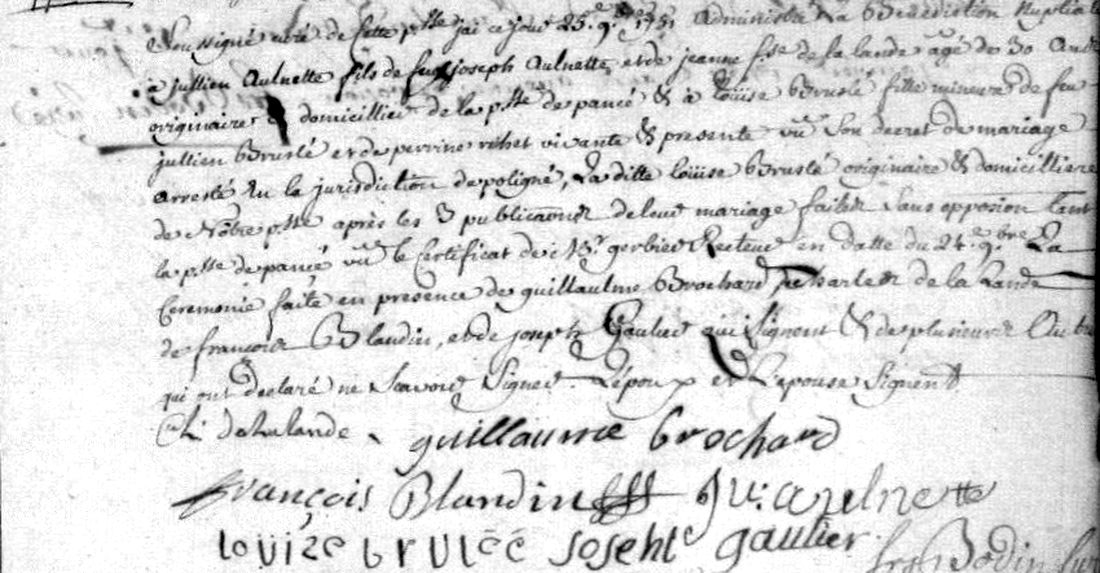 Soussigné curé de cette psse jai ce jour 25e 9bre 1751 Administré La Benediction Nuptiale
à jullien Aulnette fils de feu joseph Aulnette, et de jeanne fse de la lande agé de 30 Ans
originaire & domicillier de la psse de pancé & à Loüise Bruslé fille mineure de feu
jullien Bruslé et de perrine rihet vivante & presente vû Son decret de mariage
arresté en la jurisdiction de poligné, La ditte loüise Bruslé originaire & domicilliere
de Nôtre psse après les 3 publicaons de leur mariage faites Sans opposion tant
la psse de pancé vû le Certificat de Mr gerbier Recteur en datte du 24e 9bre La
Ceremonie faite en presence de guillaulme Brochard, de charles de la Lande
de francois Blandin, et de joseph Gaulier qui Signent & de plusieurs Autres
qui ont declaré ne Scavoir Signer. L'époux et L'epouse Signent
Ch: delalande guillaume brochard
françois Blandin ju: aulnette
loüize brulée joseht gaulier
Bodin curé